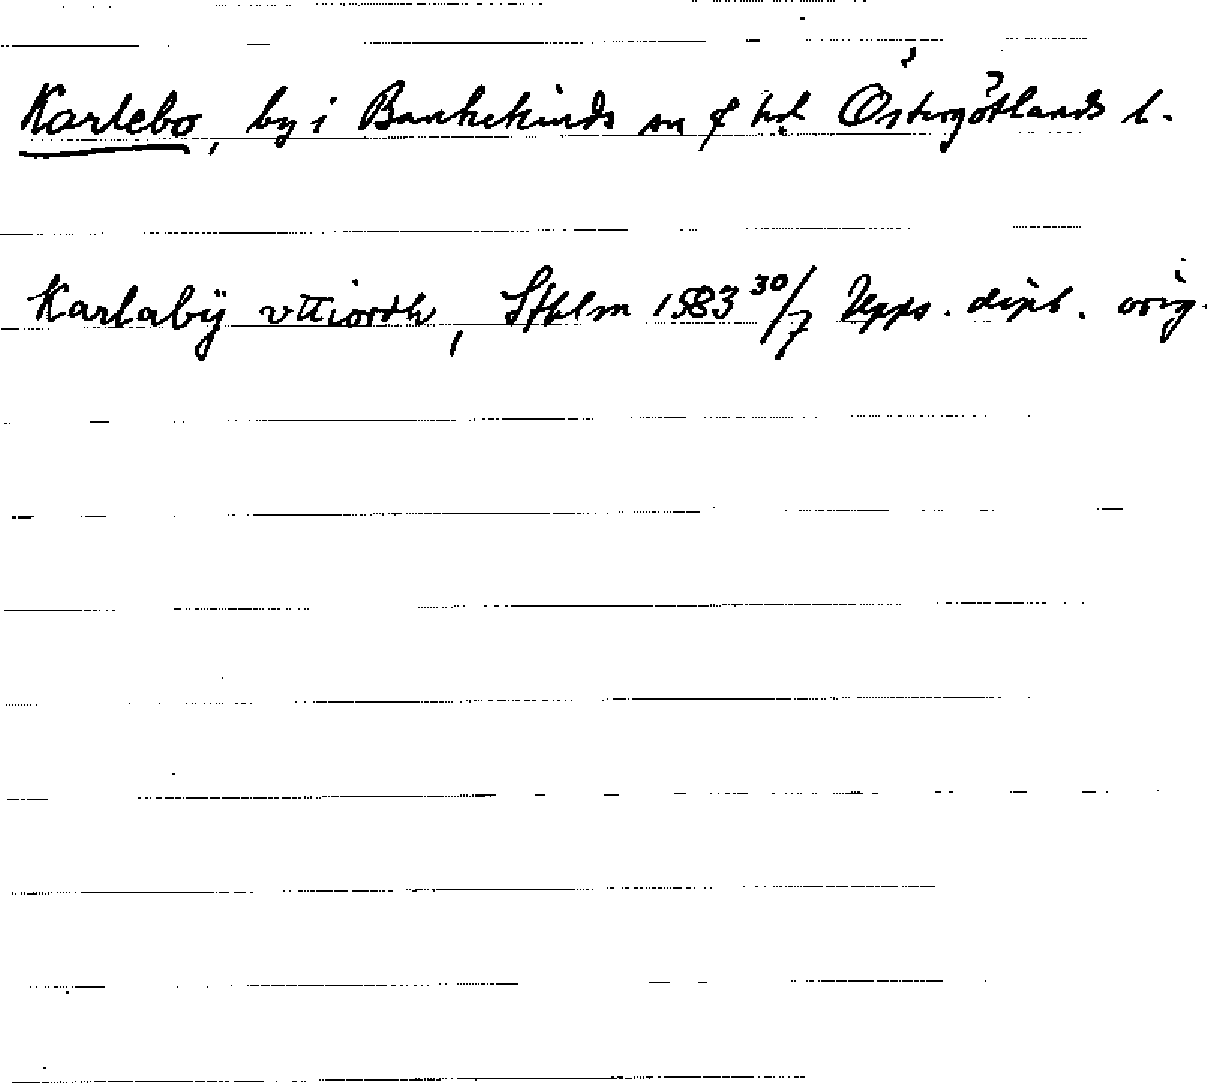 Karlebo, by i Bankekinds sn & hd Östergötlands l.
Karlaby vttiordh, Sthlm 1583 30/7 Upps. dipl. orig.